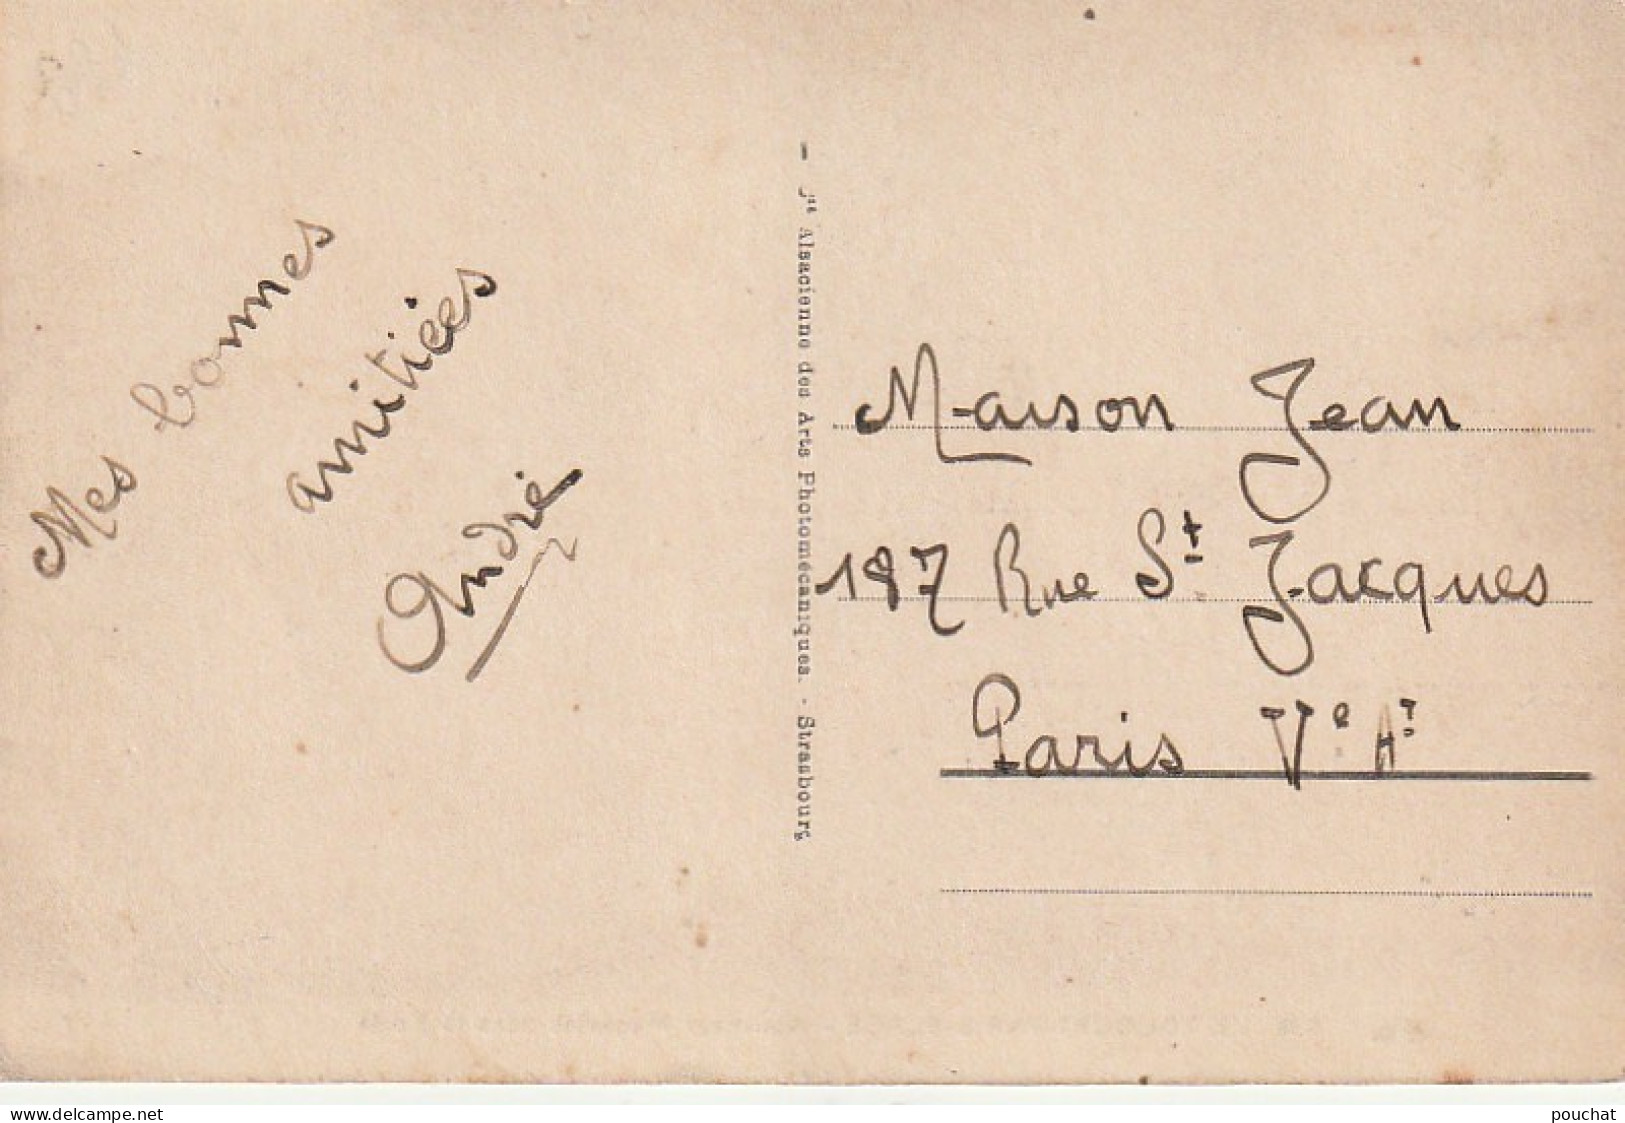 Mes bonnes
amitiées
André
- Cie Alsacienne des Arts Photomécaniques. - Strasbourg
Maison Jean
187 Rue St Jacques
Paris Ve Ar
www.delcampe.net
pouchat